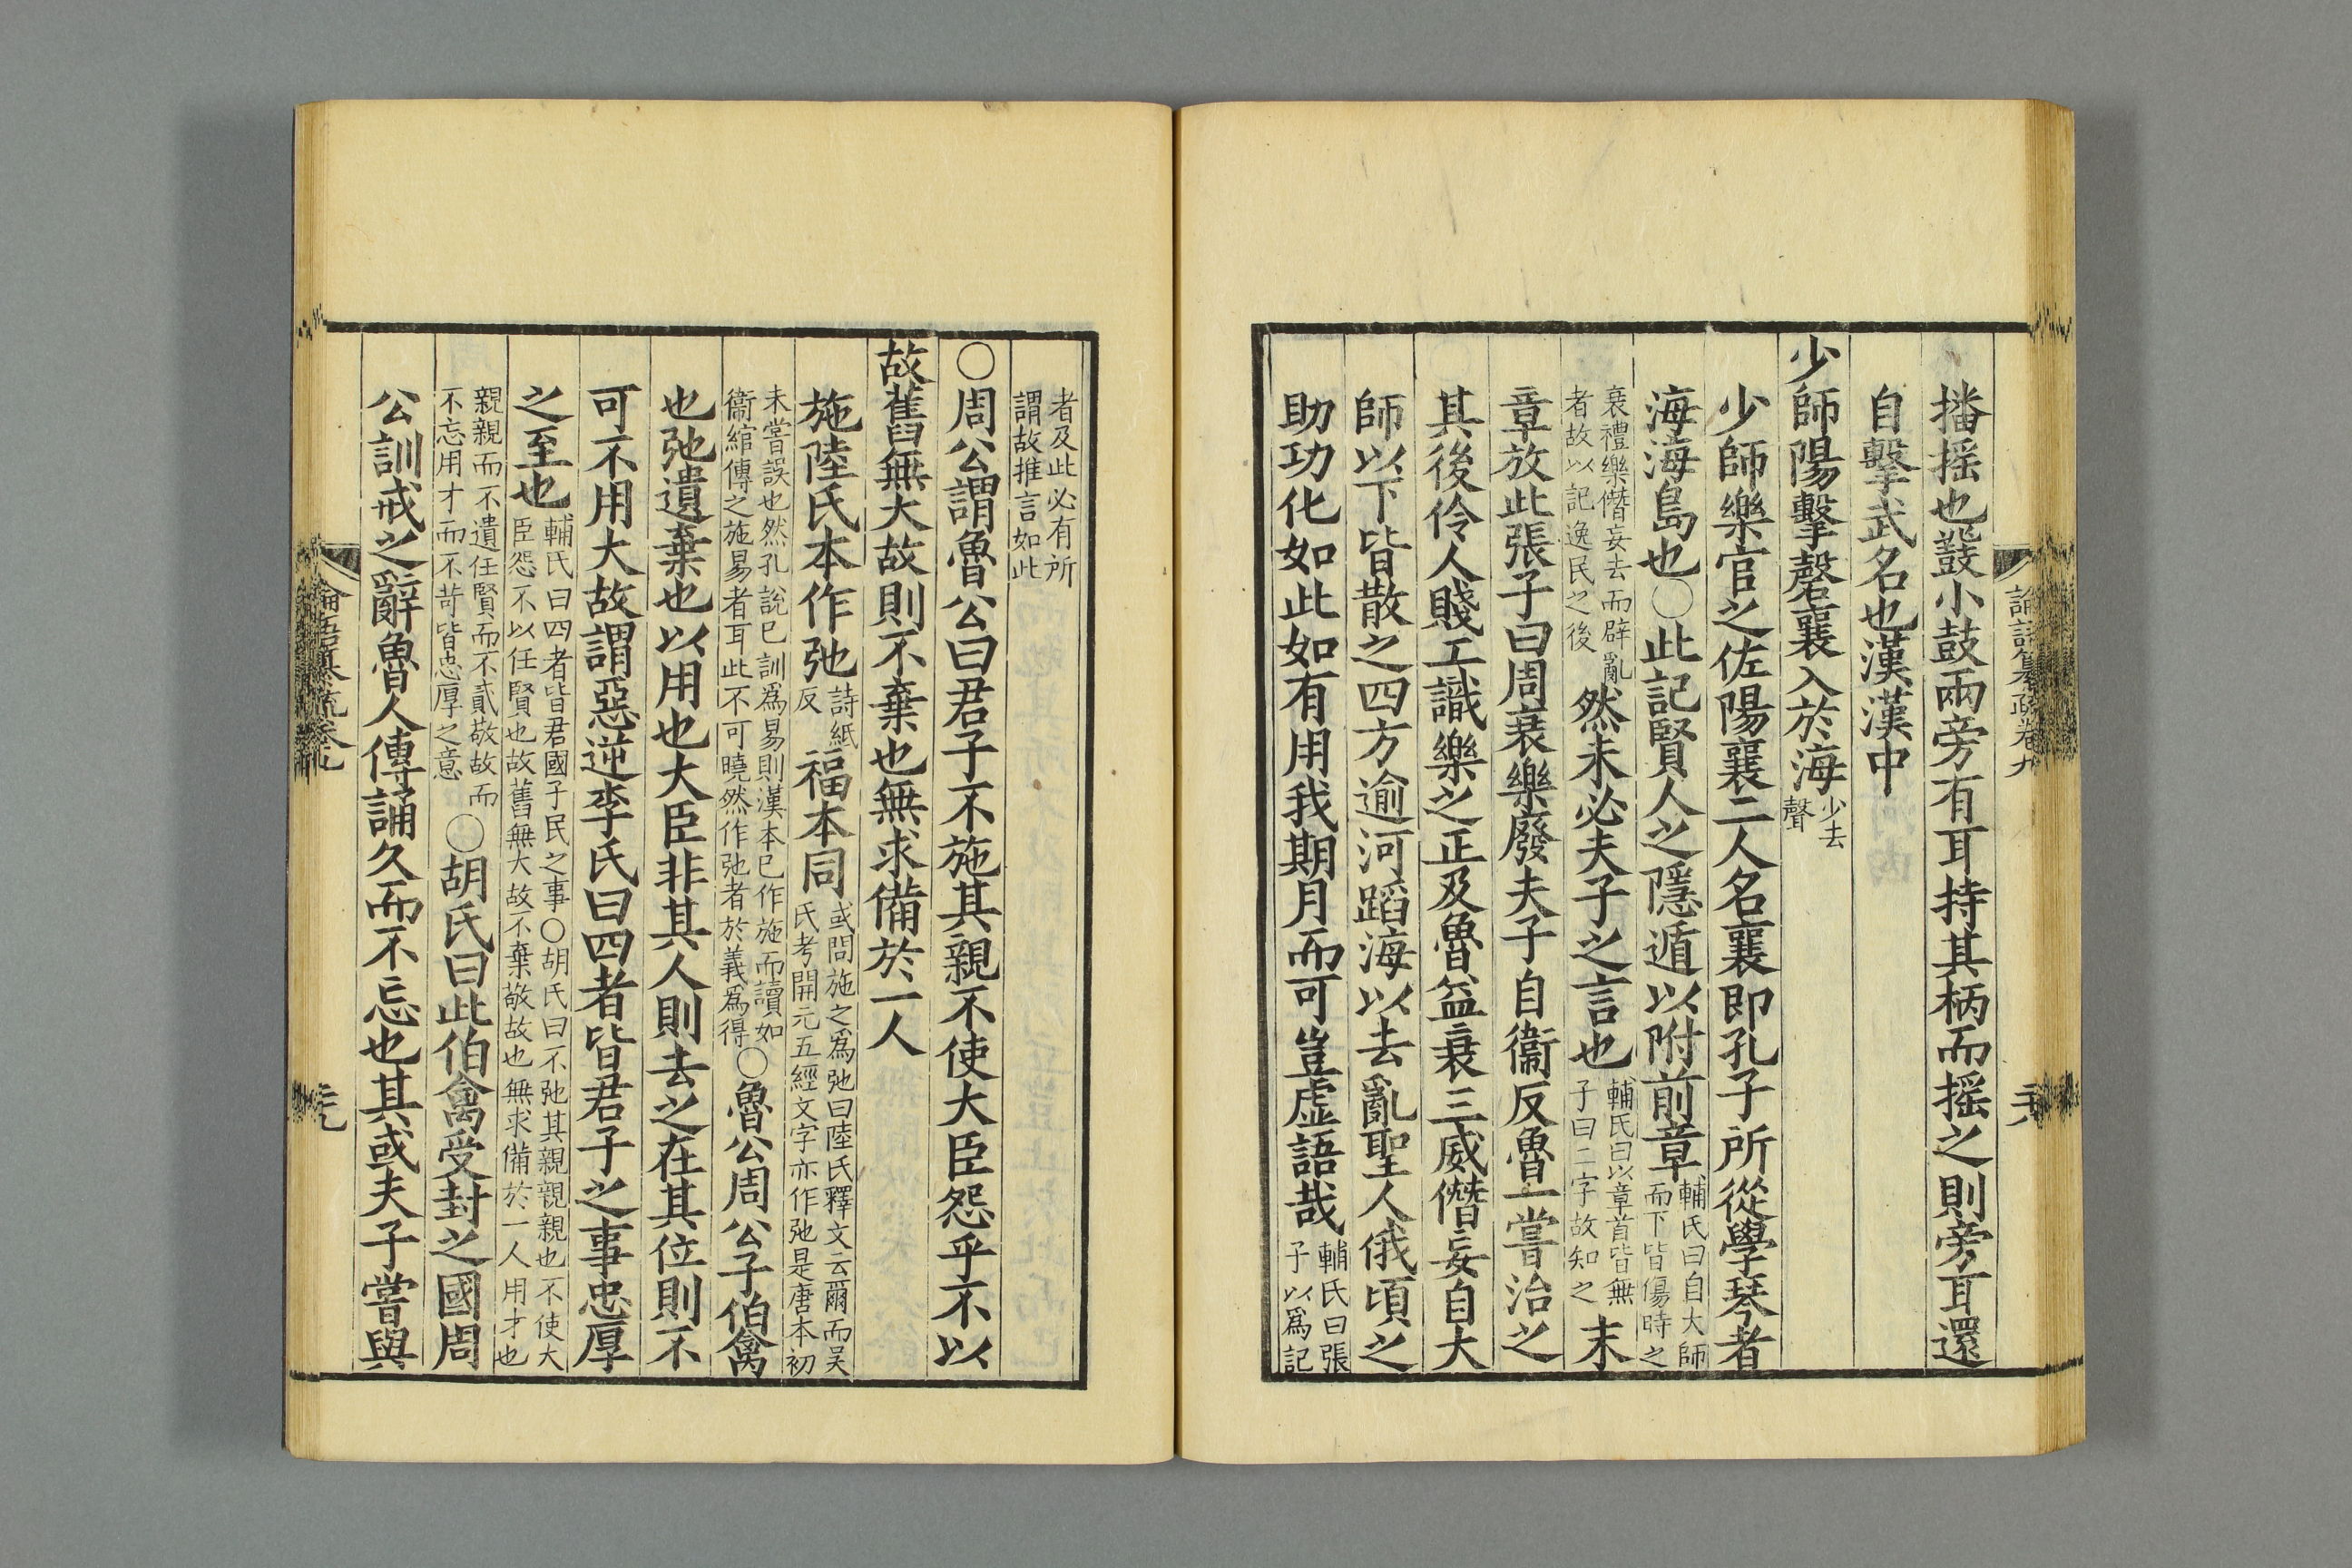 論語纂疏卷九
播搖也鼗小鼓兩旁有耳持其柄而搖之則旁耳還
自擊武名也漢漢中
少師陽擊磬襄入於海少去聲
少師樂官之佐陽襄二人名襄即孔子所從學琴者
海海島也○此記賢人之隱遁以附前章輔氏曰自大師而下皆傷時之
衰禮樂僭妄去而辟亂者故以記逸民之後然未必夫子之言也輔氏曰以章首皆無子曰二字故知之末
章放此張子曰周衰樂廢夫子自衞反魯一嘗治之
其後伶人賤工識樂之正及魯益衰三桓僭妄自大
師以下皆散之四方逾河蹈海以去亂聖人俄頃之
助功化如此如有用我期月而可豈虛語哉輔氏曰張子以爲記
者及此必有所謂故推言如此
○周公謂魯公曰君子不施其親不使大臣怨乎不以
故舊無大故則不棄也無求備於一人
施陸氏本作弛詩紙反福本同或問施之爲弛曰陸氏釋文云爾而吴氏考開元五經文字亦作弛是唐本初
未嘗誤也然孔說已訓爲易則漢本已作施而讀如衞綰傳之施易者耳此不可曉然作弛者於義爲得○魯公周公子伯禽
也弛遺棄也以用也大臣非其人則去之在其位則不
可不用大故謂惡逆李氏曰四者皆君子之事忠厚
之至也輔氏曰四者皆君國子民之事○胡氏曰不弛其親親親也不使大臣怨不以任賢也故舊無大故不棄敬故也無求備於一人用才也
親親而不遺任賢而不貳敬故而不忘用才而不苛皆忠厚之意○胡氏曰此伯禽受封之國周
公訓戒之辭魯人傳誦久而不忘也其或夫子嘗與
論語纂疏卷九